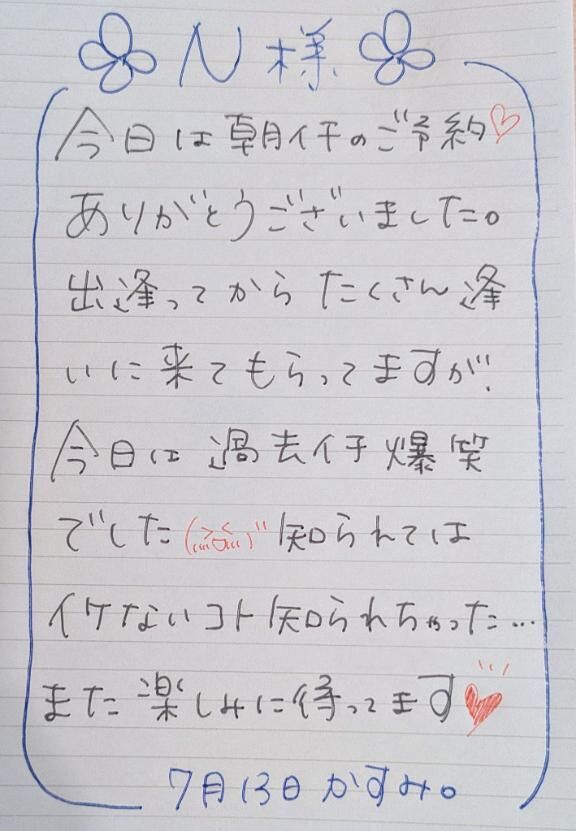 N様
今日は朝イチのご予約♡
ありがとうございました。
出逢ってからたくさん逢
いに来てもらってますが、
今日は過去イチ爆笑
でした 知られては
イケないコト知られちゃった…
また楽しみに待ってます♥
7月13日 かすみ。